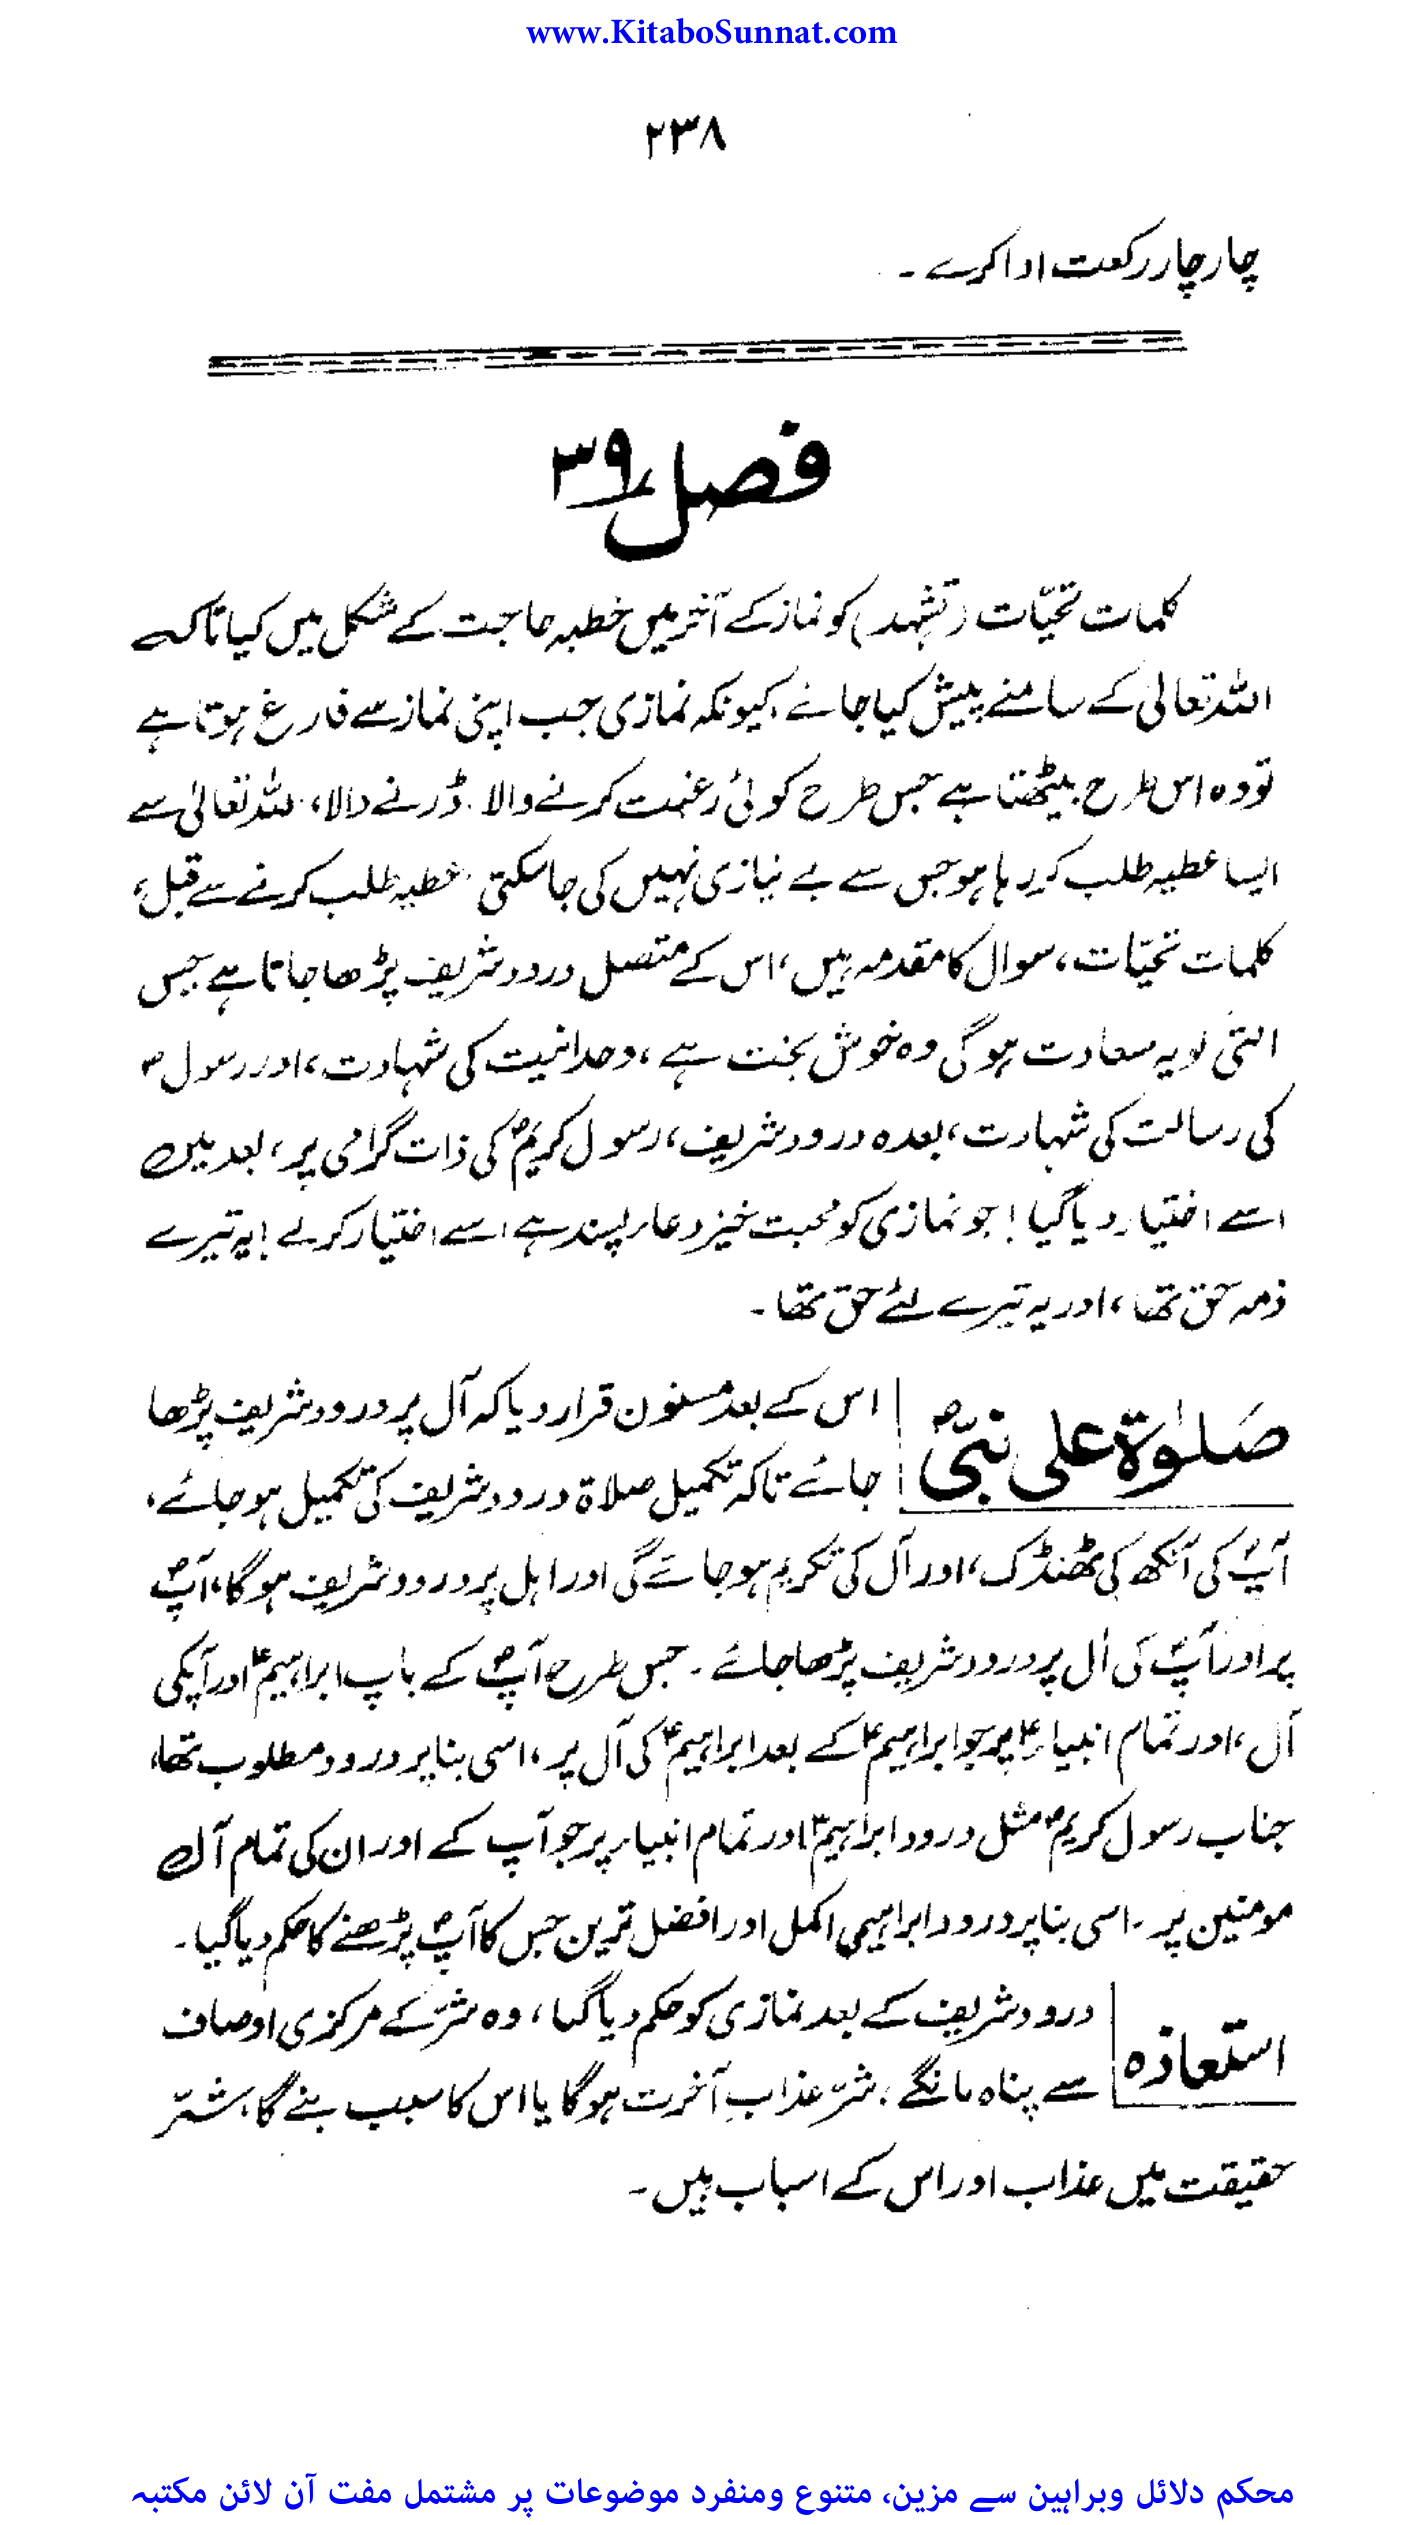 www.KitaboSunnat.com
۲۳۸
چار چار رکعت ادا کرے ۔
فصل ۳۹
کلمات تحیّات (تشہد) کو نماز کے آخر میں خطبہ حاجت کے شکل میں کیا تاکہ
اللہ تعالیٰ کے سامنے پیش کیا جائے، کیونکہ نمازی جب اپنی نماز سے فارغ ہوتا ہے
تو وہ اس طرح بیٹھتا ہے جس طرح کوئی رغبت کرنے والا، ڈرنے والا، اللہ تعالیٰ سے
ایسا عطیہ طلب کر رہا ہو جس سے بے نیازی نہیں کی جا سکتی، عطیہ طلب کرنے سے قبل،
کلمات تحیّات، سوال کا مقدمہ ہیں، اس کے متصل درود شریف پڑھا جاتا ہے جس
التی کو یہ سعادت ہو گی وہ خوش بخت ہے، وحدانیت کی شہادت، اور رسولؐ
کی رسالت کی شہادت، بعدہ درود شریف، رسول کریمؐ کی ذات گرامی پر، بعد میں
اسے اختیار دیا گیا! جو نمازی کو محبت خیز دعا پسند ہے اسے اختیار کرلے! یہ تیرے
ذمہ حق تھا، اور یہ تیرے لئے حق تھا۔
صَلوٰۃ علی نبیؐ
اس کے بعد مسنون قرار دیا کہ آل پر درود شریف پڑھا
جائے تاکہ تکمیل صلاۃ درود شریف کی تکمیل ہو جائے،
آپؐ کی آنکھ کی ٹھنڈک، اور آل کی تکریم ہو جائے گی اور اہل پر درود شریف ہو گا، آپؐ
پر اور آپؐ کی آل پر درود شریف پڑھا جائے ۔ جس طرح آپؐ کے باپ ابراہیمؑ اور آپکی
آل، اور تمام انبیاءؑ پر جو ابراہیمؑ کے بعد ابراہیمؑ کی آل پر، اسی بنا پر درود مطلوب تھا،
جناب رسول کریمؐ مثل درود ابراہیمؑ اور تمام انبیاء پر جو آپ کے اور ان کی تمام آل
مومنین پر ۔ اسی بنا پر درود ابراہیمی اکمل اور افضل ترین جس کا آپؐ پڑھنے کا حکم دیا گیا ۔
استعاذہ
درود شریف کے بعد نمازی کو حکم دیا گیا، وہ شرّ کے مرکزی اوصاف
سے پناہ مانگے، شرّ عذابِ آخرت ہو گا یا اس کا سبب بنے گا، شرّ
حقیقت میں عذاب اور اس کے اسباب ہیں ۔
محکم دلائل وبراہین سے مزین، متنوع ومنفرد موضوعات پر مشتمل مفت آن لائن مکتبہ